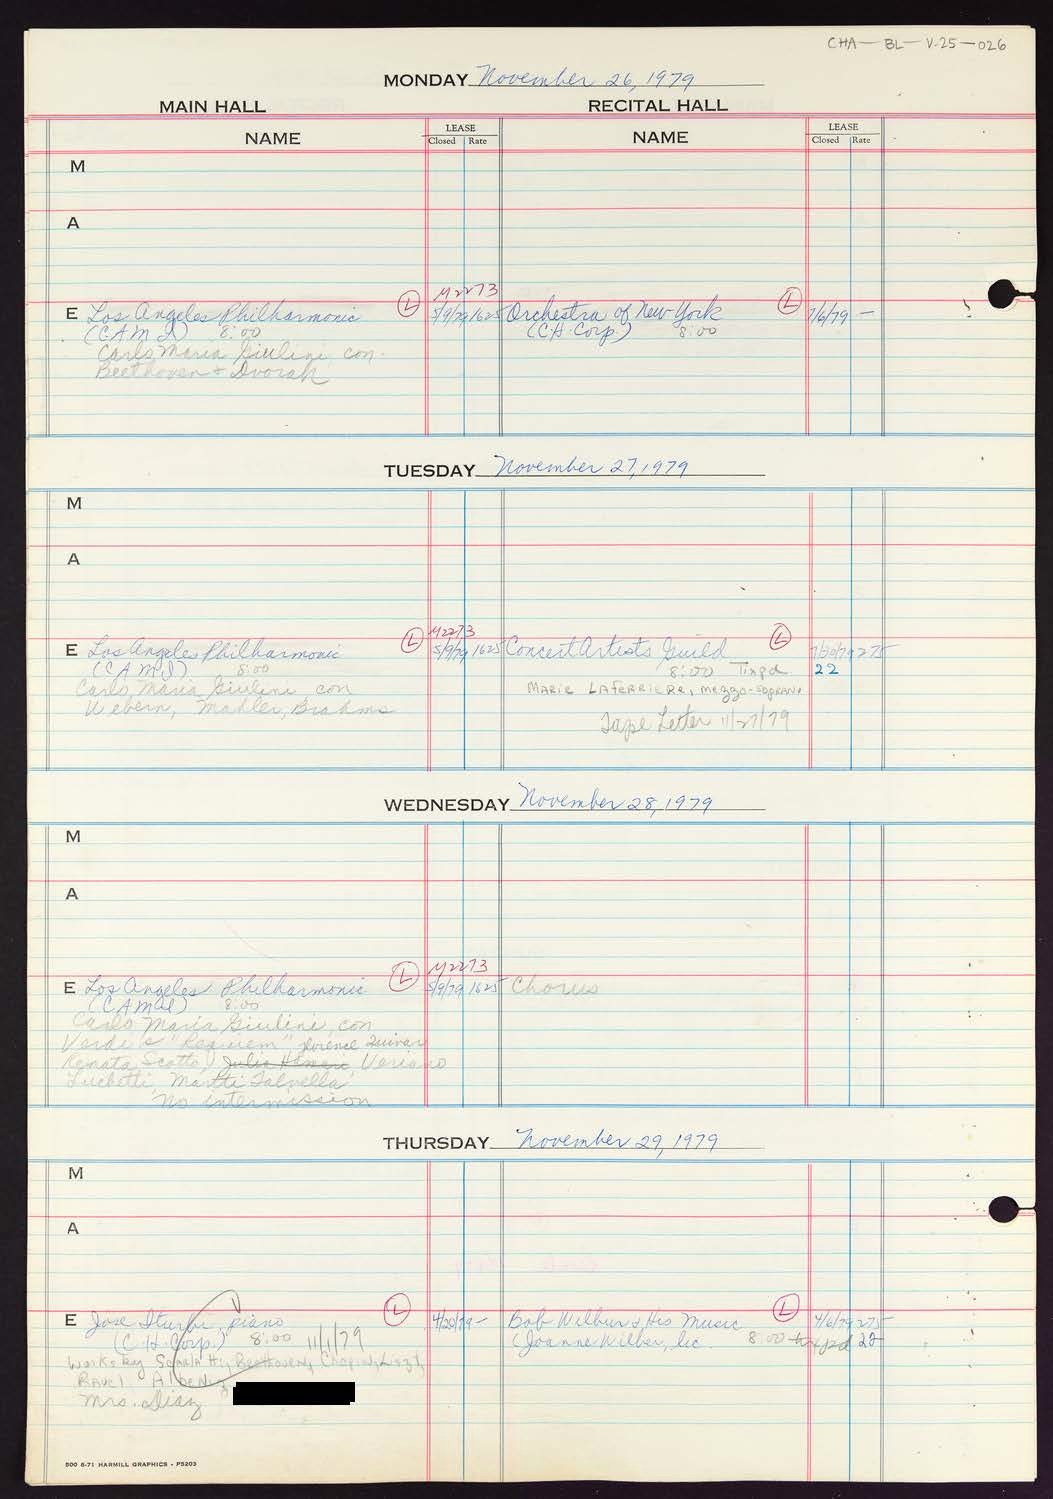 CHA-BL-V-25-026
MONDAY November 26, 1979
MAIN HALL RECITAL HALL
NAME LEASE Closed Rate NAME LEASE Closed Rate
M
A
M2273
E Los Angeles Philharmonic (L) 5/9/79 1625 Orchestra of New York (L) 7/6/79 -
(CAMI) 8:00 (C.H. Corp.) 8:00
Carlo Maria Giulini, con.
Beethoven + Dvorak
TUESDAY November 27, 1979
M
A
M2273
E Los Angeles Philharmonic (L) 5/9/79 1625 Concert Artists Guild (L) 7/30/79 275
(CAMI) 8:00 8:00 Tixpd 22
Carlo Maria Giulini, con MARIE LAFERRIERE, mezzo-soprano
Webern, Mahler, Brahms
Tape Letter 11/27/79
WEDNESDAY November 28, 1979
M
A
M2273
E Los Angeles Philharmonic (L) 5/9/79 1625 Chorus
(CAMI) 8:00
Carlo Maria Giulini, con
Verdi's "Requiem" Florence Quivar
Renata Scotto, Julia Hamari Veriano
Luchetti, Martti Talvella
No intermission
THURSDAY November 29, 1979
M
A
E Jose Iturbi, piano (L) 4/20/79 - Bob Wilbur & His Music (L) 4/6/79 275
(C.H. Corp.) 8:00 11/1/79 (Joanne Wilber, lic. 8:00 tixpd 22
Works by Scarlatti, Beethoven, Chopin, Liszt,
Ravel, Albeniz
Mrs. Diaz
500 8-71 HARMILL GRAPHICS - P5203